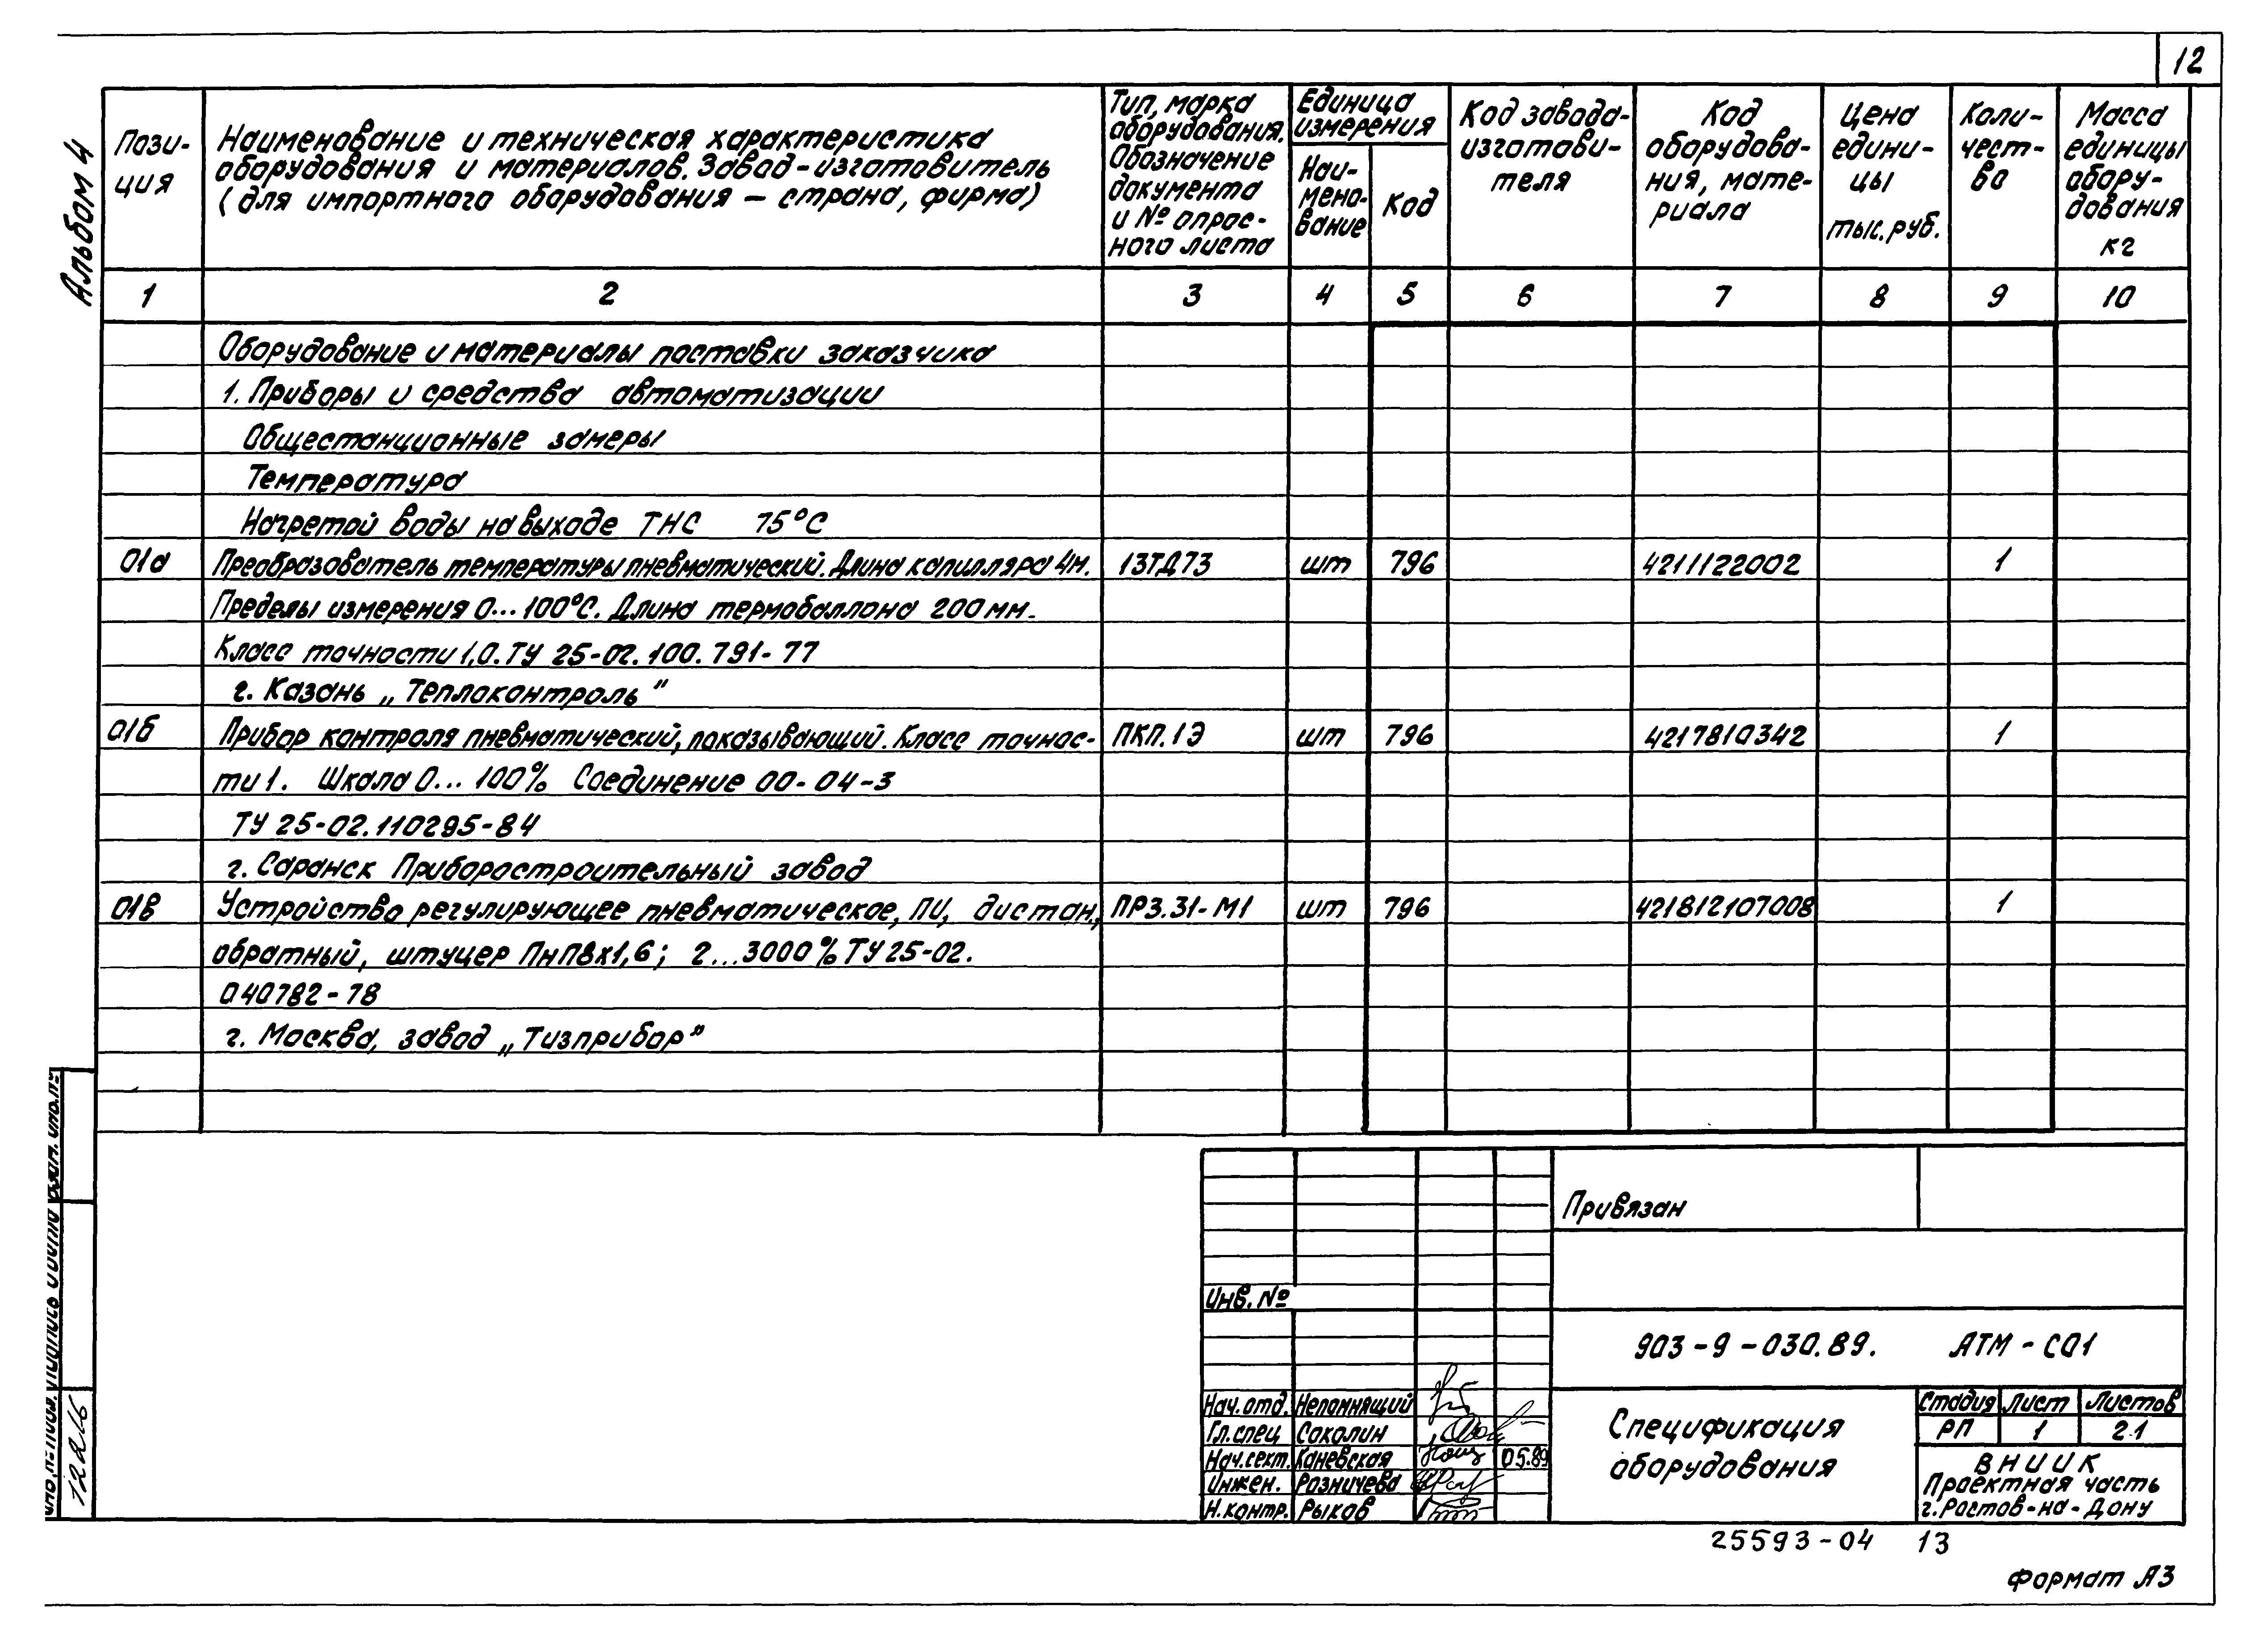 12
Альбом 4
Пози-
ция
Наименование и техническая характеристика
оборудования и материалов. Завод-изготовитель
(для импортного оборудования – страна, фирма)
Тип, марка
оборудования.
Обозначение
документа
и № опрос-
ного листа
Единица
измерения
Наи-
мено-
вание
Код
Код завода-
изготови-
теля
Код
оборудова-
ния, мате-
риала
Цена
едини-
цы
тыс. руб.
Коли-
чест-
во
Масса
единицы
обору-
дования
кг
1 2 3 4 5 6 7 8 9 10
Оборудование и материалы поставки заказчика
1. Приборы и средства автоматизации
Общестанционные замеры
Температура
Нагретой воды на выходе ТНС 75°С
01а Преобразователь температуры пневматический. Длина капилляра 4м. 13ТД73 шт 796 4211122002 1
Пределы измерения 0...100°С. Длина термобаллона 200 мм.
Класс точности 1,0. ТУ 25-02.100.791-77
г. Казань „Теплоконтроль"
01б Прибор контроля пневматический, показывающий. Класс точнос- ПКП.1Э шт 796 4217810342 1
ти 1. Шкала 0...100% Соединение 00-04-3
ТУ 25-02.110295-84
г. Саранск Приборостроительный завод
01в Устройство регулирующее пневматическое, ПИ, дистан., ПР3.31-М1 шт 796 421812107008 1
обратный, штуцер ПнП8х1,6; 2...3000% ТУ 25-02.
040782-78
г. Москва, завод „Тизприбор"
Привязан
Инв. №
903-9-030.89. АТМ-С01
Нач. отд. Непомнящий
Гл. спец Соколин
Нач. сект. Каневская 05.89
Инжен. Розничева
Н. контр. Рыков
Спецификация
оборудования
Стадия Лист Листов
РП 1 21
ВНИИК
Проектная часть
г. Ростов-на-Дону
25593-04 13
Формат А3